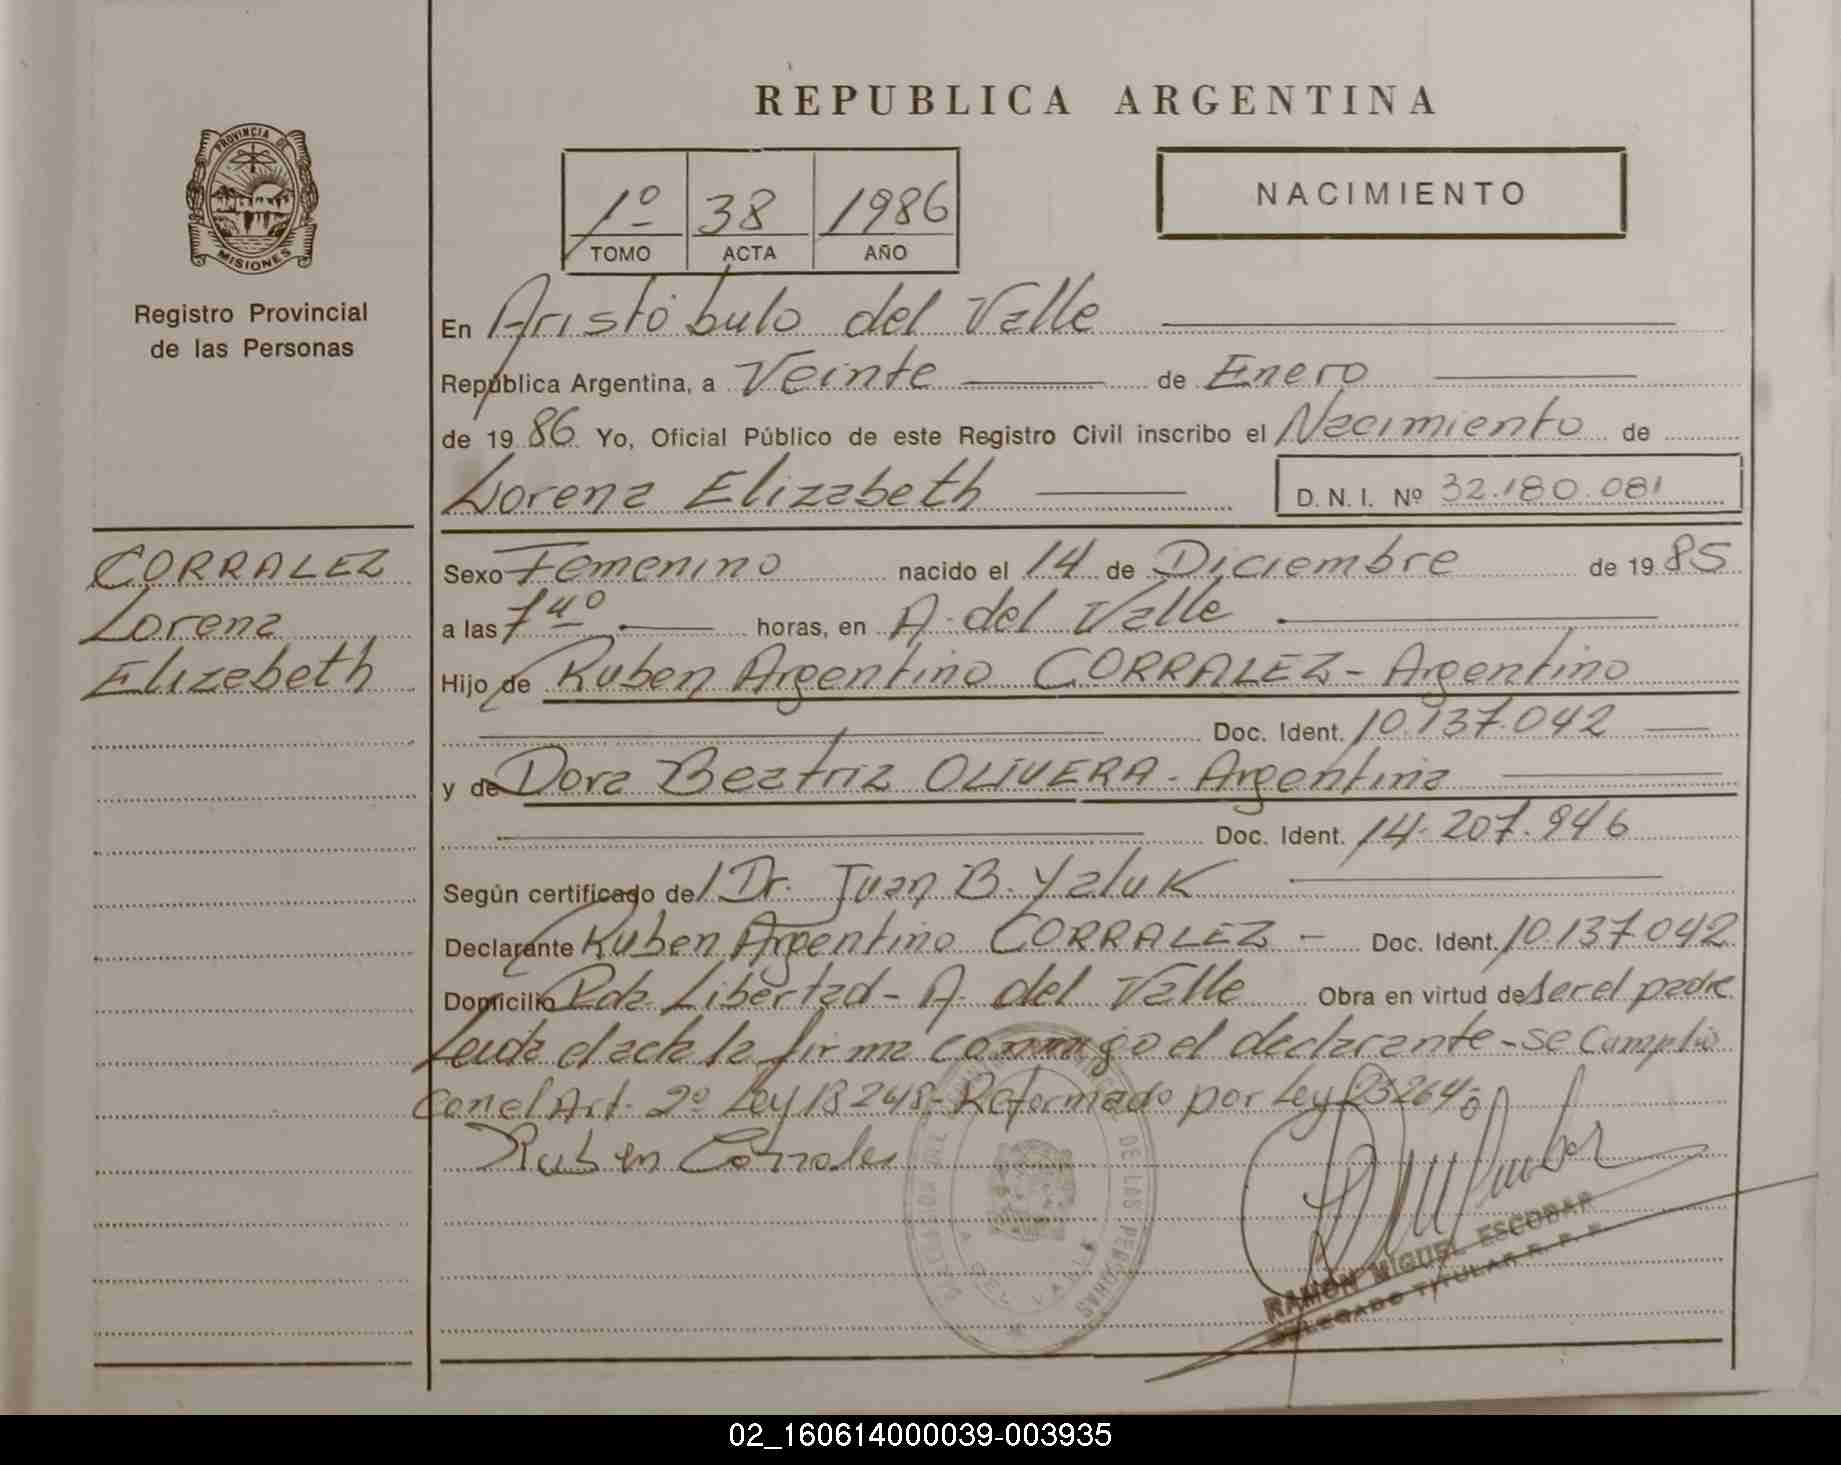 REPUBLICA ARGENTINA
PROVINCIA DE
MISIONES
Registro Provincial
de las Personas
1º 38 1986
TOMO ACTA AÑO
NACIMIENTO
En Aristóbulo del Valle
República Argentina, a Veinte de Enero
de 19 86 Yo, Oficial Público de este Registro Civil inscribo el Nacimiento de
Lorena Elizabeth D. N. I. Nº 32.180.081
CORRALEZ
Lorena
Elizabeth
Sexo Femenino nacido el 14 de Diciembre de 19 85
a las 7 40 horas, en A. del Valle
Hijo de Ruben Argentino CORRALEZ - Argentino
Doc. Ident. 10.137.042
y de Dora Beatriz OLIVERA - Argentina
Doc. Ident. 14.207.946
Según certificado de Dr. Juan B. Yaluk
Declarante Ruben Argentino CORRALEZ - Doc. Ident. 10.137.042
Domicilio Pda. Libertad - A. del Valle Obra en virtud de ser el padre
Leida el acta la firma conmigo el declarante - se Cumplió
con el Art. 2º Ley 18248 - Reformado por Ley 23264
Ruben Corrales
DE LAS PERSONAS
A. DEL VALLE
RAMON MIGUEL ESCOBAR
DELEGADO TITULAR R. P. P.
02_160614000039-003935